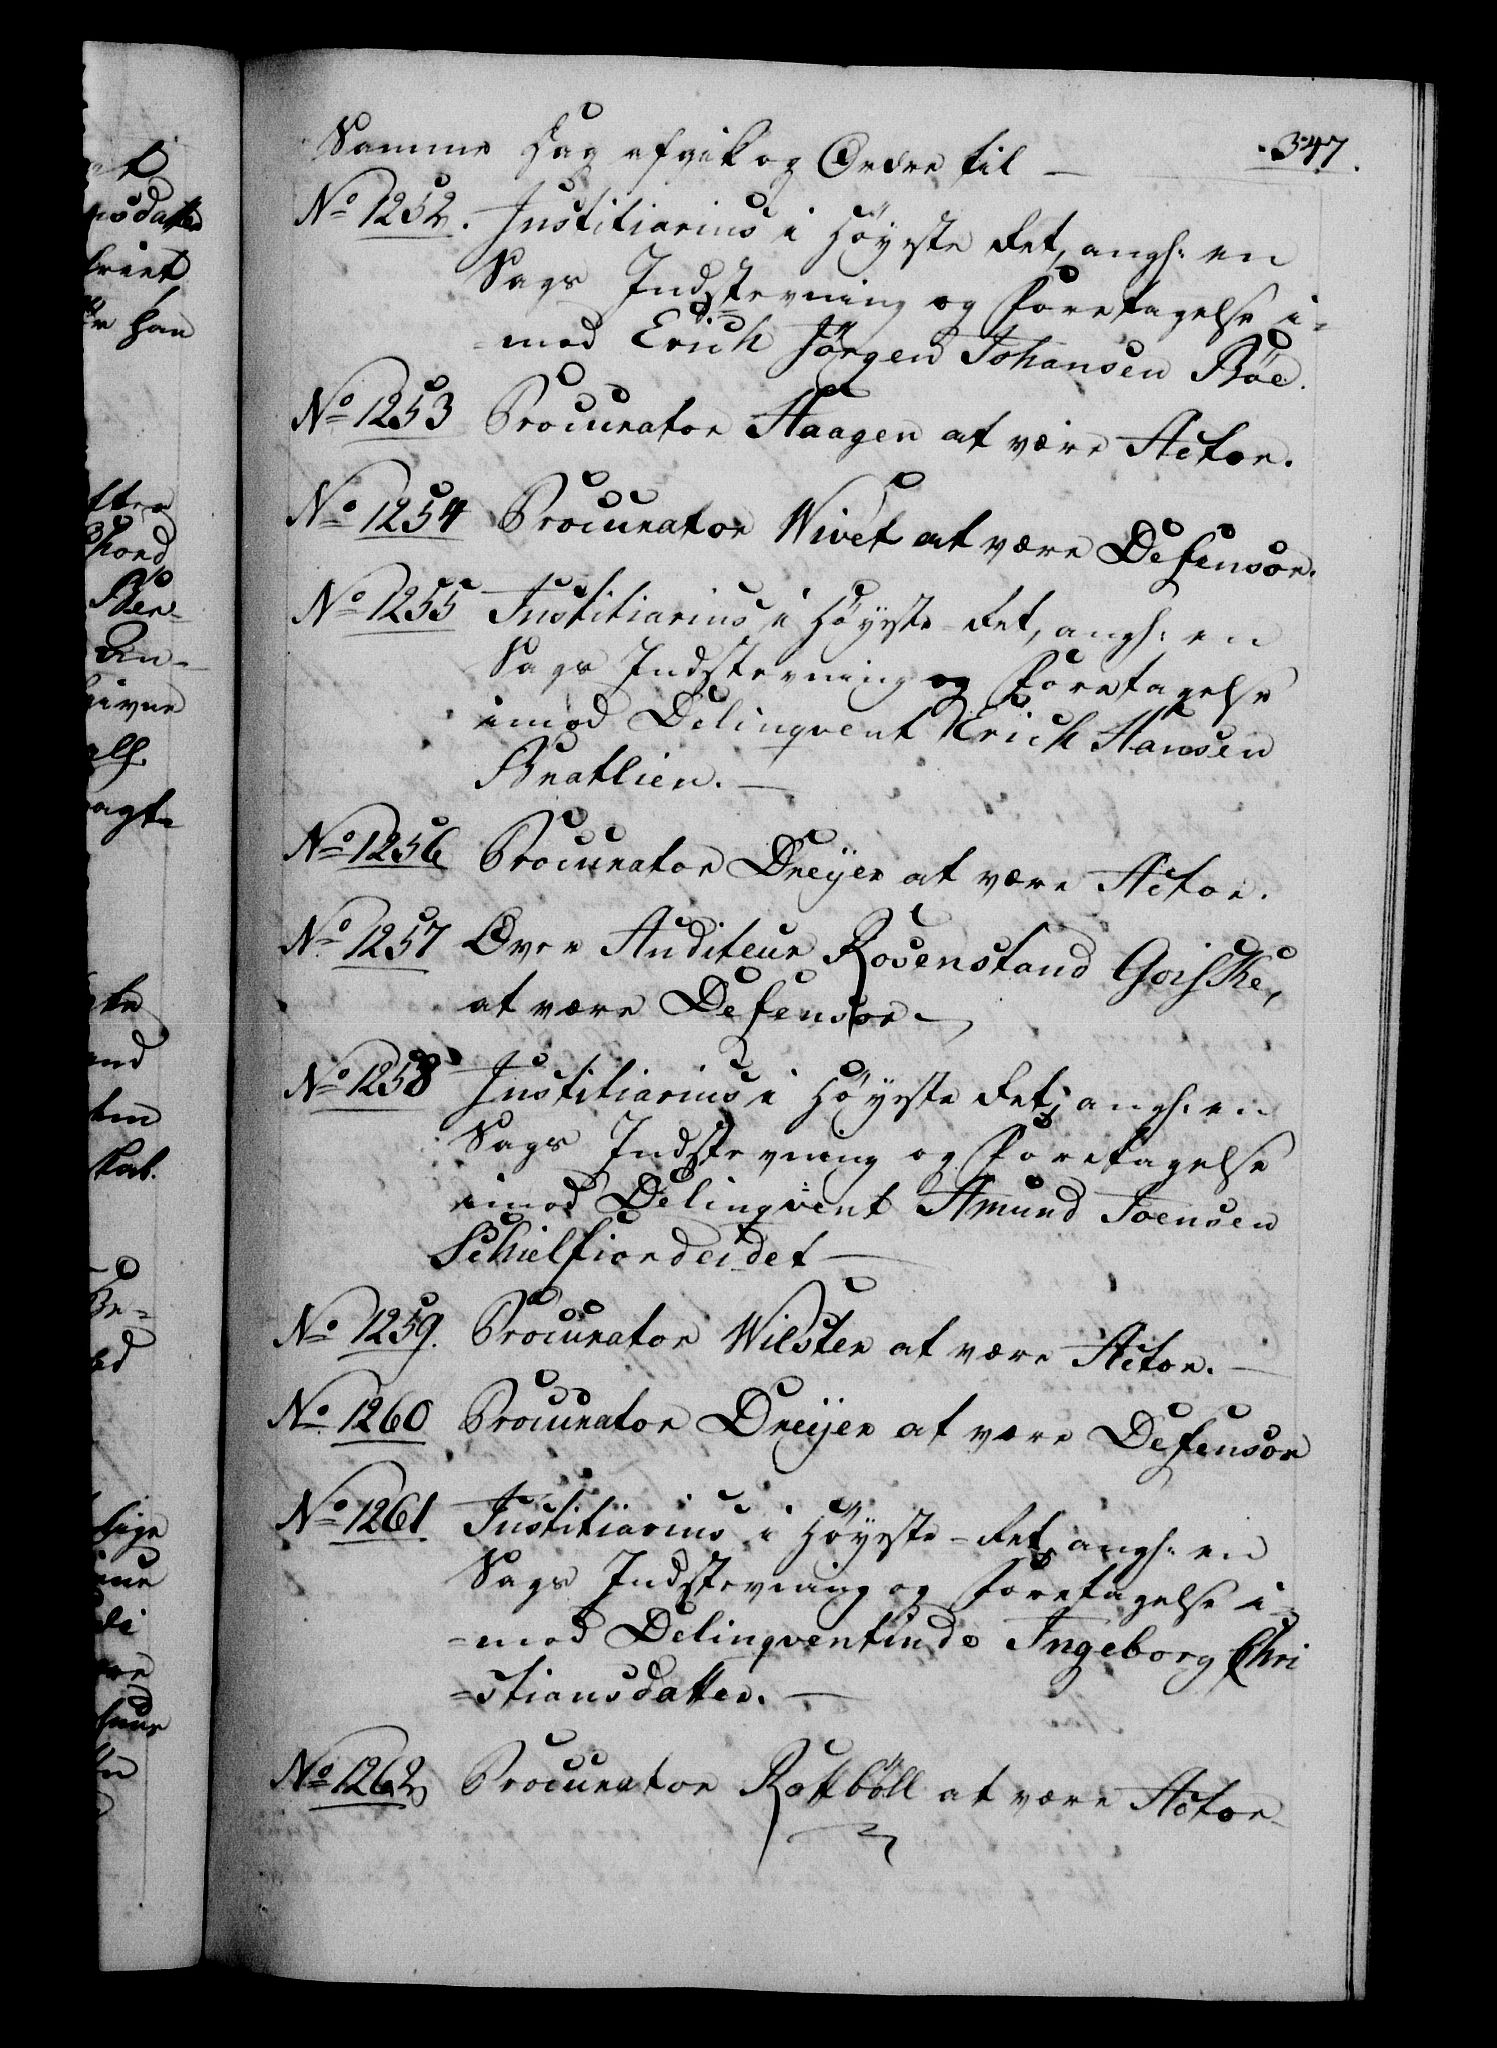 347.
Samme Dag afgik og Ordre til —
No 1252. Justitiarius i Höyeste Ret, angh: en
Sags Indstevning og Foretagelse i-
-mod Erich Jörgen Johansen Böe.
No 1253 Procurator Haagen at være Actor.
No 1254 Procurator Wivet at være Defensor.
No 1255 Justitiarius i Höyeste-Ret, angh: en
Sags Indstevning og Foretagelse
imod Delinqvent Erich Hansen
Bratlien. —
No 1256 Procurator Dreijer at være Actor.
No 1257 Over Auditeur Rosenstand Goiske,
at være Defensor —
No 1258 Justitiarius i Höyeste Ret, angh: en
Sags Indstevning og Foretagelse
imod Delinqvent Amund Joensen
Schielfiordeidet —
No 1259. Procurator Wilster at være Actor. —
No 1260 Procurator Dreijer at være Defensor
No 1261 Justitiarius i Höyeste-Ret, angh: en
Sags Indstevning og Foretagelse i-
-mod Delinqventinde Ingeborg Chri
-stiansdatter. —
No 1262 Procurator Rottböll at være Actor